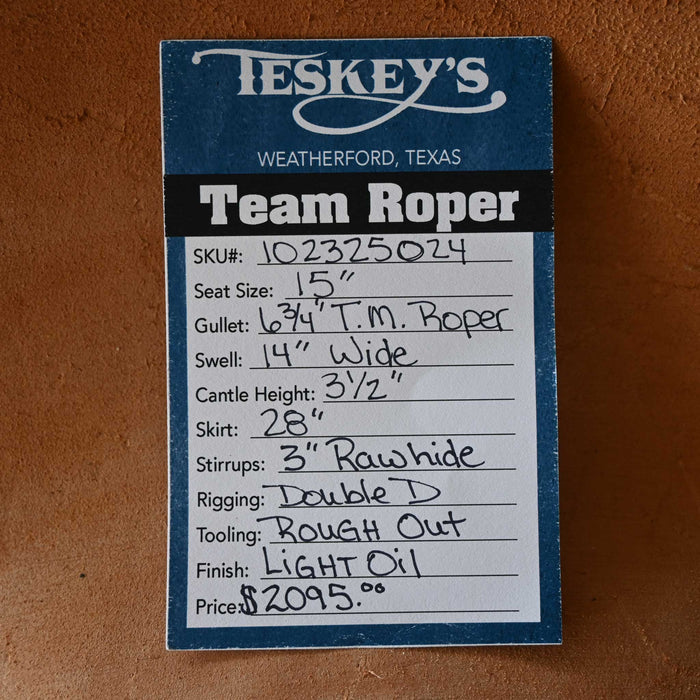 TESKEY'S
WEATHERFORD, TEXAS
Team Roper
SKU#: 102325024
Seat Size: 15"
Gullet: 6 3/4" T.M. Roper
Swell: 14" Wide
Cantle Height: 3 1/2"
Skirt: 28"
Stirrups: 3" Rawhide
Rigging: Double D
Tooling: ROUGH Out
Finish: LIGHT Oil
Price: $2095.00